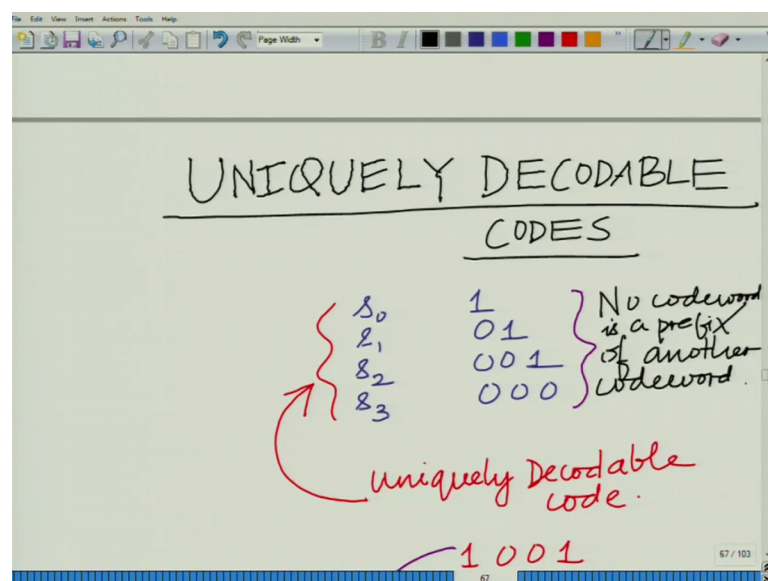 File Edit View Insert Actions Tools Help
Page Width
B I
UNIQUELY DECODABLE
CODES
s₀ 1
s₁ 01
s₂ 001
s₃ 000
No codeword
is a prefix
of another
codeword.
Uniquely Decodable
code.
1001
67 / 103
67